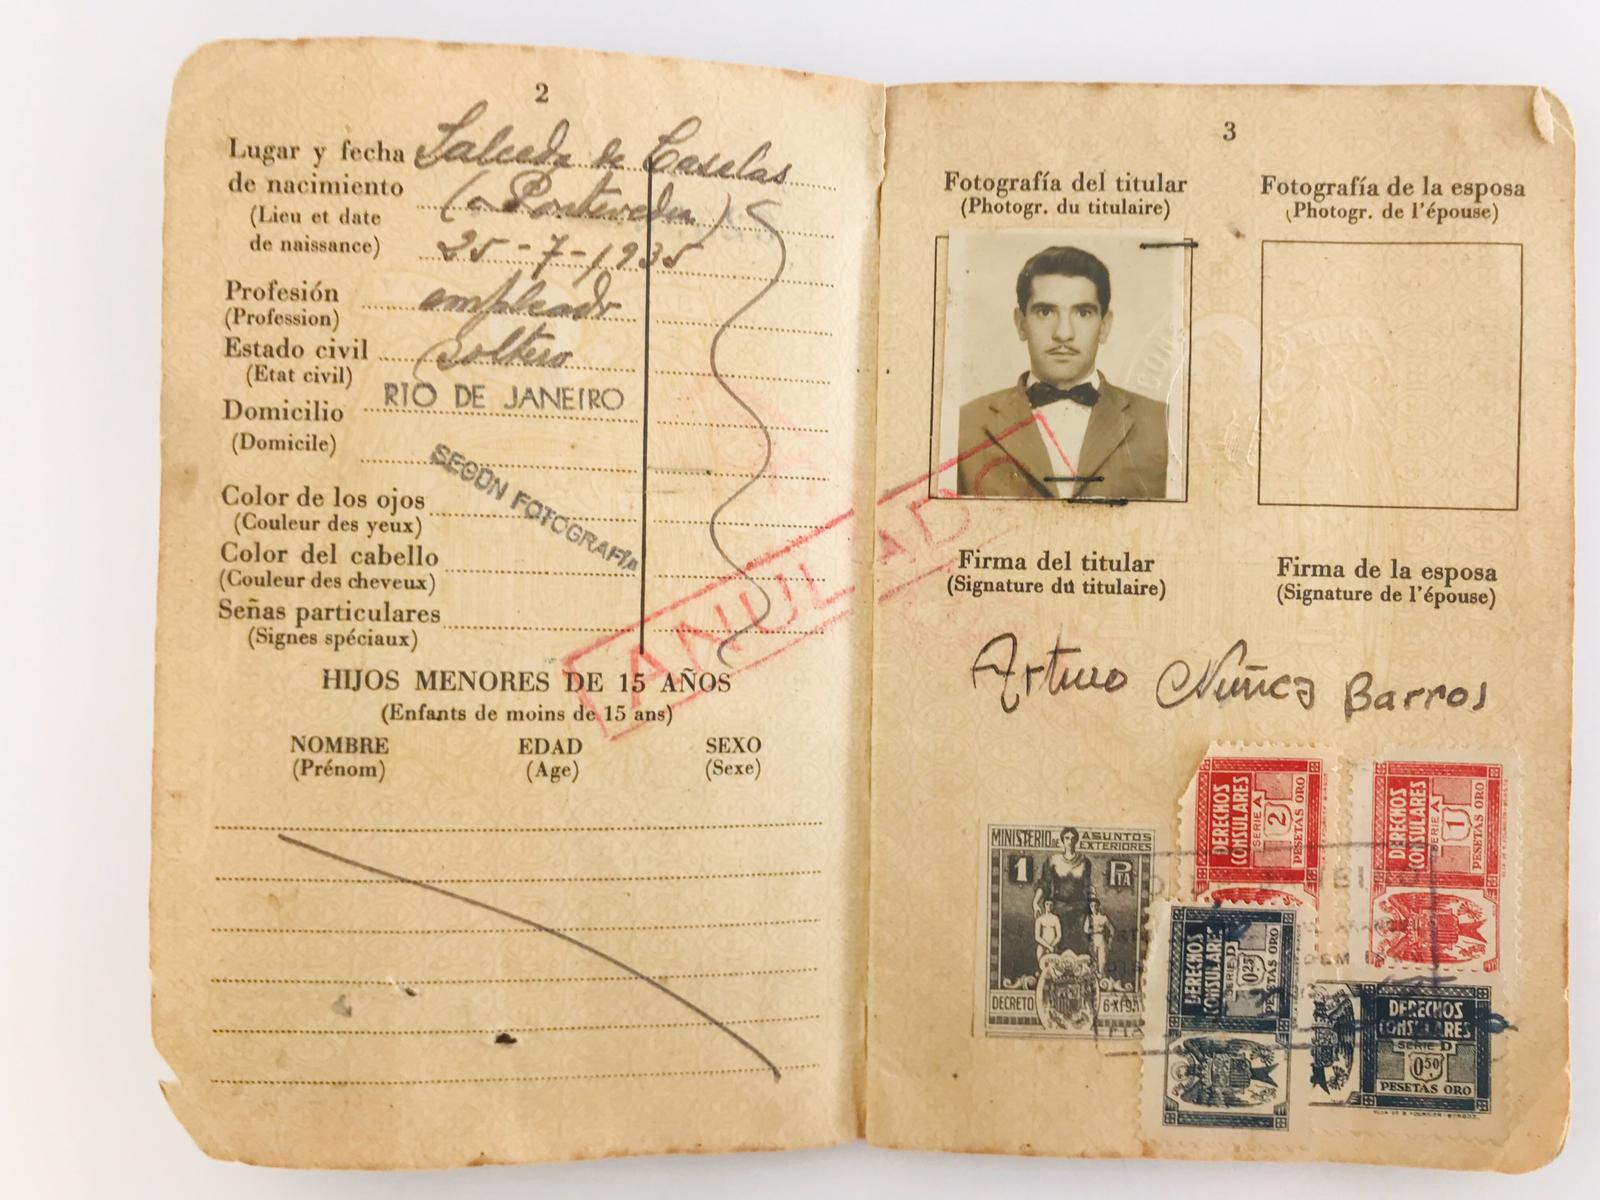 2
Lugar y fecha Salceda de Caselas
de nacimiento (Pontevedra)
(Lieu et date
de naissance) 25-7-1935
Profesión empleado
(Profession)
Estado civil soltero
(Etat civil)
Domicilio RIO DE JANEIRO
(Domicile)
SEGUN FOTOGRAFIA
Color de los ojos
(Couleur des yeux)
Color del cabello
(Couleur des cheveux)
Señas particulares
(Signes spéciaux)
ANULADO
HIJOS MENORES DE 15 AÑOS
(Enfants de moins de 15 ans)
NOMBRE EDAD SEXO
(Prénom) (Age) (Sexe)
3
Fotografía del titular
(Photogr. du titulaire)
Fotografía de la esposa
(Photogr. de l'épouse)
Firma del titular
(Signature du titulaire)
Firma de la esposa
(Signature de l'épouse)
Arturo Núñez Barros
MINISTERIO DE ASUNTOS
EXTERIORES
1 PTA
DECRETO
DERECHOS
CONSULARES
SERIE A
2
PESETAS ORO
DERECHOS
CONSULARES
SERIE A
1
PESETAS ORO
DERECHOS
CONSULARES
SERIE D
0'25
PESETAS ORO
DERECHOS
CONSULARES
SERIE D
0'50
PESETAS ORO